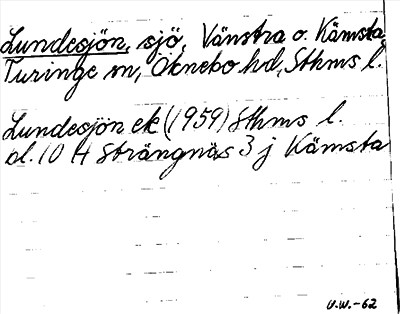 Lundesjön, sjö, Vänstra o. Kämsta
Turinge sn, Öknebo hd, Sthms l.
Lundesjön ek (1959) Sthms l.
bl. 10 H Strängnäs 3 j Kämsta
U.W.-62